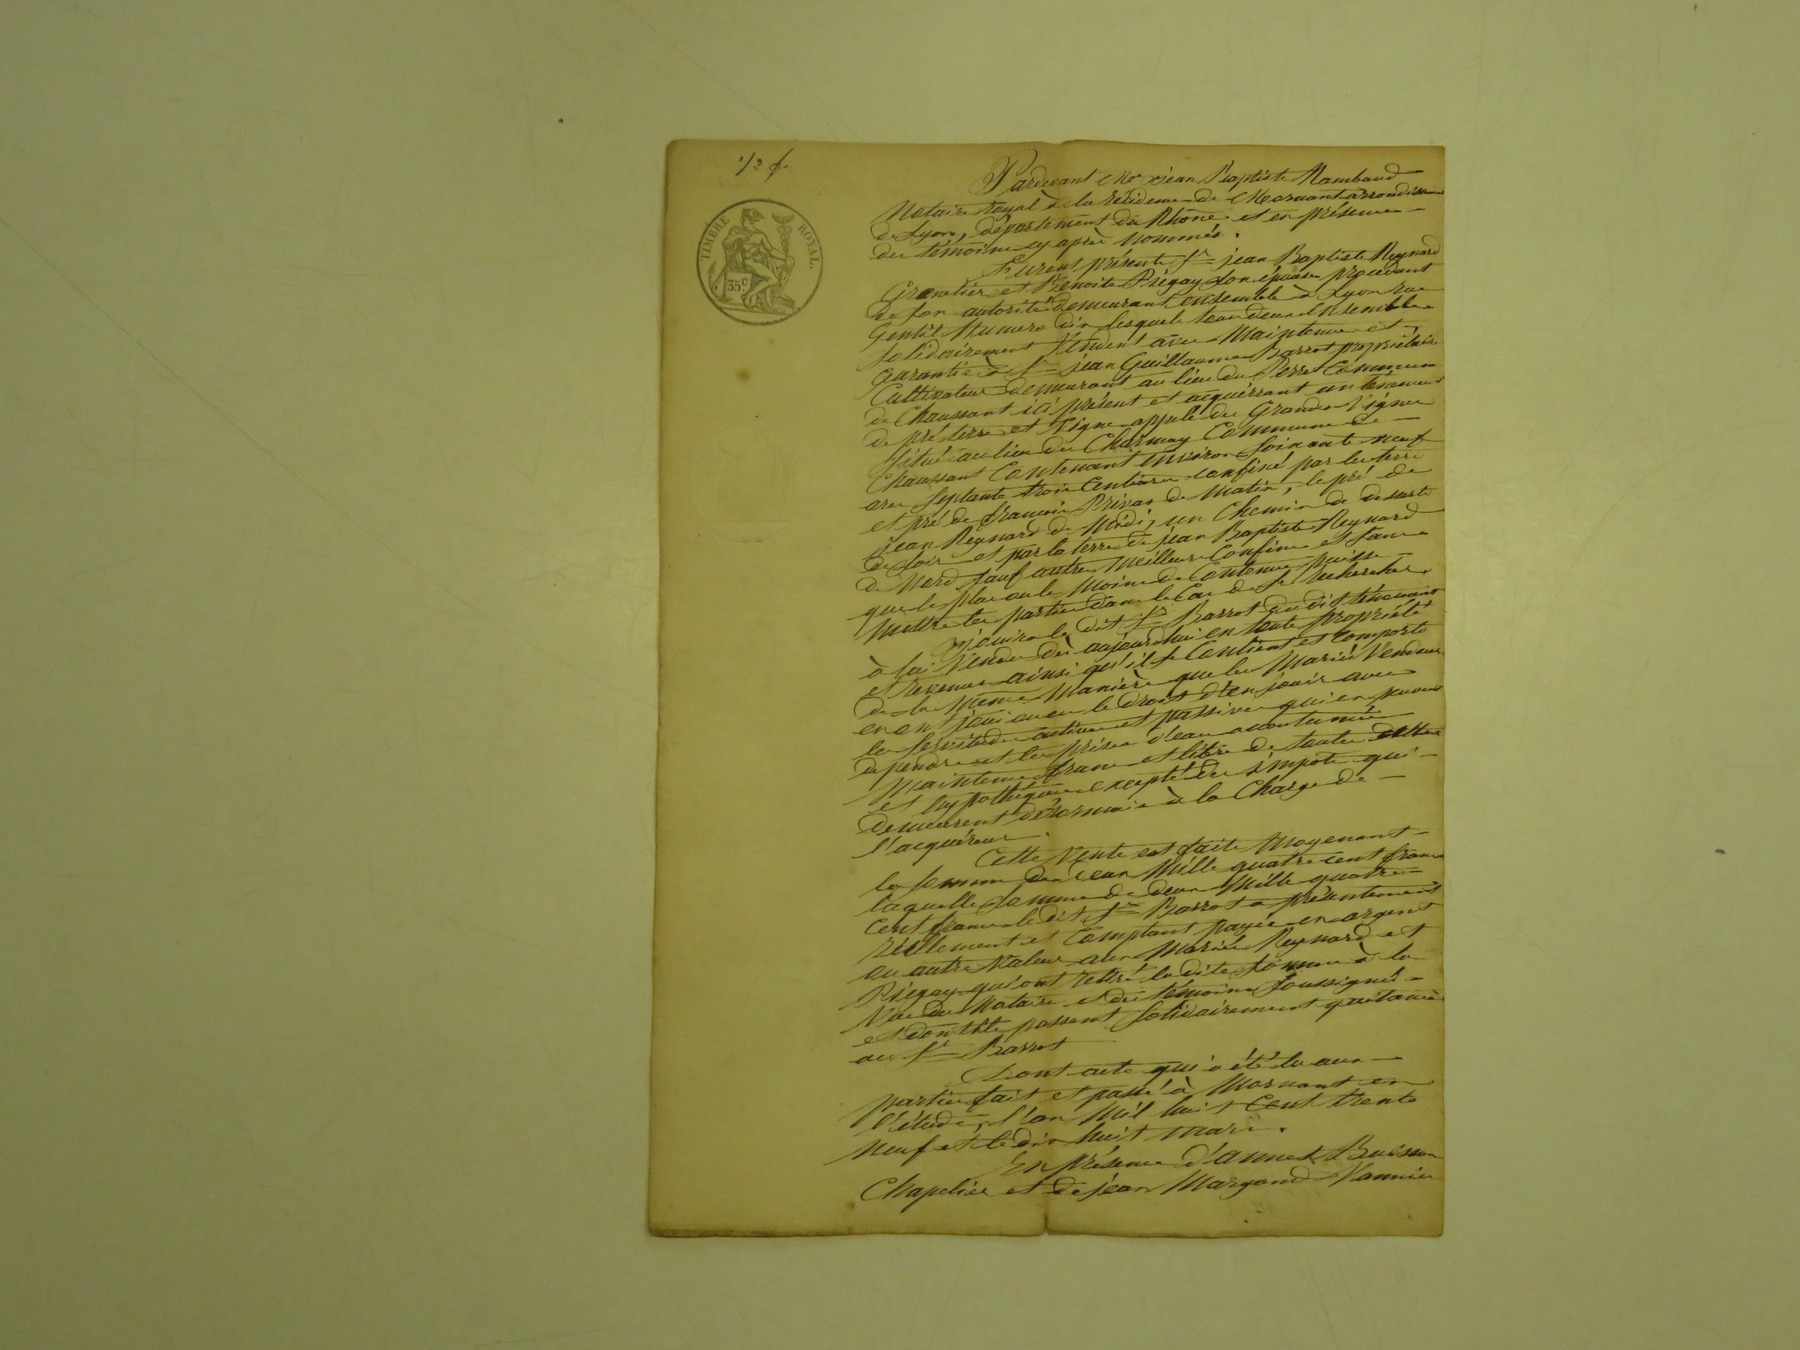 1/2 f.
TIMBRE ROYAL.
35c.
Pardevant Me jean Baptiste Rambaud
Notaire royal à la résidence de Mornant arrondissement
de Lyon, département du Rhône et en présence
des témoins cy après nommés.
Furent présents Sr jean Baptiste Reynard
Grenetier et Benoite Priegay son épouse procédant
de son autorité demeurant ensemble à Lyon rue
Gentil Numero dix lesquels tous deux ensemble
solidairement vendent avec Maintenue et
garantie à Sr jean Guillaume Barrot propriétaire
Cultivateur demeurant au lieu du Perret Commune
de Chaussant ici présent et acquérrant un tènement
de pré terre et Vigne appelé des Grandes Vignes
situé au lieu du Charnay Commune de
Chaussant Contenant environ soixante neuf
ares septante trois Centiares confiné par les terre
et pré de françois Privas de Matin, le pré de
jean Reynard de Midi, un Chemin de desserte
de soir et par la terre de jean Baptiste Reynard
de Nord sauf autres Meilleurs Confins et sans
que le plus ou le Moins de Contenue puisse
Mettre les parties dans le Cas de se rechercher.
jouira le dit Sr Barrot du dit tènement
à lui Vendu dès aujourdhui en toute propriété
et revenus ainsi qu'il se Contient et Comporte
de la Même Manière que les Mariés Vendeurs
en ont joui ou eu le droit d'en jouir avec
les servitudes actives et passives qui en peuvent
dépendre et les prises d'eau accoutumées
Maintenu franc et libre de toutes dettes
et hypothèques excepté des impots qui
demeurent désormais à la Charge de
l'acquéreur.
Cette Vente est faite Moyenant
la somme de deux Mille quatre cent francs
laquelle somme de deux Mille quatre
Cent francs le dit Sr Barrot a présentement
réellement et Comptant payée en argent
ou autre Valeur aux Mariés Reynard et
Priegay qui ont retiré la dite somme à la
Vue du Notaire et des témoins soussignés
et dont ils passent solidairement quittance
au Sr Barrot
Dont acte qui a été lu aux
parties fait et passé à Mornant en
l'étude, l'an Mil huit Cent trente
neuf et le dix huit mars.
En présence d'annet Buisson
Chapelier et de jean Margand Vannier